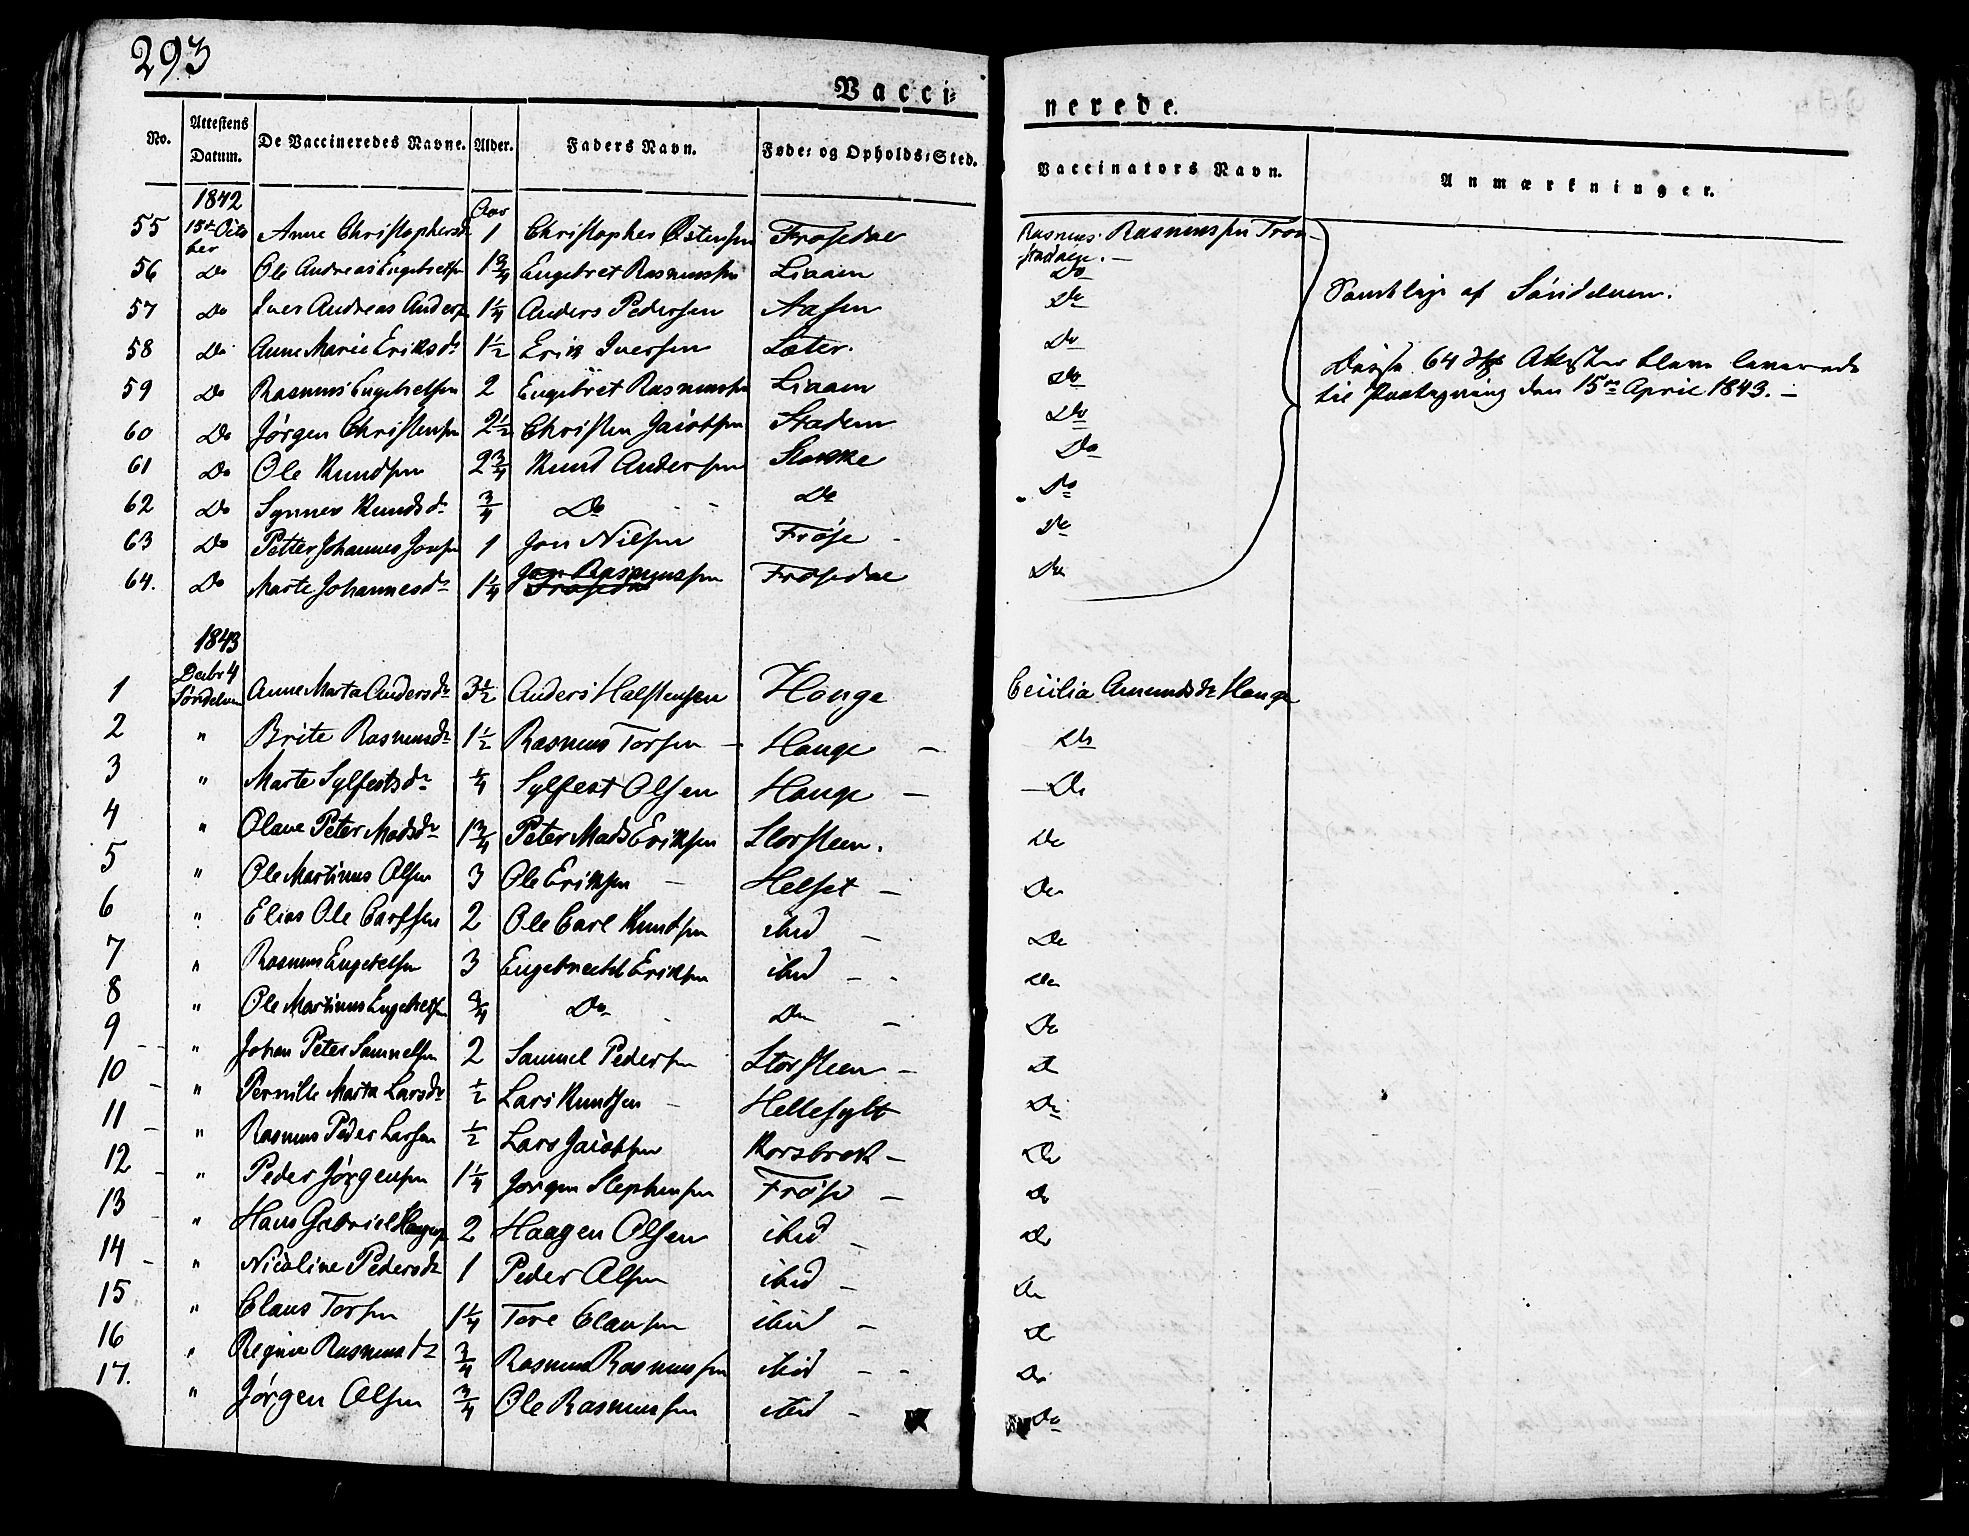 293
Vacci- nerede.
No. Attestens Datum. De Vaccineredes Navne. Alder. Faders Navn. Føde- og Opholds-Sted. Vaccinators Navn. Anmærkninger.
1842 Aar
55 15de Octo Anne Christophersdr 1 Christopher Østensen Frøsedal Rasmus Rasmussen Tron-
ber stadvig. —
56 Do Ole Andreas Engebretsen 1 3/4 Engebret Rasmussen Liaaen Do
57 Do Iver Andreas Anders 1 1/4 Anders Pedersen Aasen Do
58 Do Anne Marie Eriksdr 1 1/2 Erik Iversen Sæter. Do
59 Do Rasmus Engebretsen 2 Engebret Rasmussen Liaaen Do
60 Do Jørgen Christensen 2 1/2 Christen Jacobsen Stadem Do
61 Do Ole Knudsen 2 3/4 Knud Andersen Stokke Do
62 Do Synnev Knudsdr 3/4 Do Do Do
63 Do Petter Johannes Jonsen 1 Jon Nilsen Frøse Do
64. Do Marte Johannesdr 1 1/4 Rasmussen Frøsedal Do
Samtlige af Søndelven.
Disse 64 Attester bleve leverede
til Provten den 15de April 1843. —
1843
Decbr 4
1 Søndelven Anne Marta Andersdr 3 1/2 Anders Halstensen Hauge Cecilia Amundsdr Hauge
2 " Brite Rasmusdr 1 1/2 Rasmus Torsen — Hauge — Do
3 " Marte Sylfestsdr 1/4 Sylfest Olsen Hauge — Do
4 " Olave Peter Madsdr 1 3/4 Peter Mads Eriksen Storsteen. Do
5 " Ole Martinus Olsen 3 Ole Eriksen — Helset — Do
6 " Elias Ole Carlsen 2 Ole Carl Knudsen ibid — Do
7 " Rasmus Engebretsen 3 Engebrecht Eriksen ibid — Do
8 " Ole Martinus Engebretsen 3/4 Do Do — Do
9 " Johan Peter Samuelsen 2 Samuel Pedersen Storsteen — Do
10 " Pernille Marta Larsdr 1/2 Lars Knudsen — Hellesylt Do
11 " Rasmus Peder Larsen 1/2 Lars Jacobsen Korsbrek — Do
12 " Peder Jørgensen 1 1/4 Jørgen Stephensen Frøse — Do
13 " Hans Gabriel Haagens 2 Haagen Olsen ibid — Do
14 " Nicoline Pedersdr 1 Peder Olsen ibid — Do
15 " Claus Torsen 1 1/4 Tore Clausen ibid — Do
16 " Regine Rasmusdr 3/4 Rasmus Rasmussen ibid — Do
17. " Jørgen Olsen 3/4 Ole Rasmussen ibid — Do